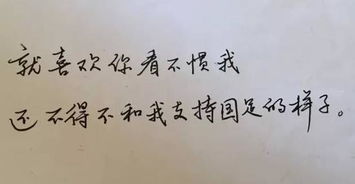 就喜欢你看不惯我
还不得不和我支持国足的样子。